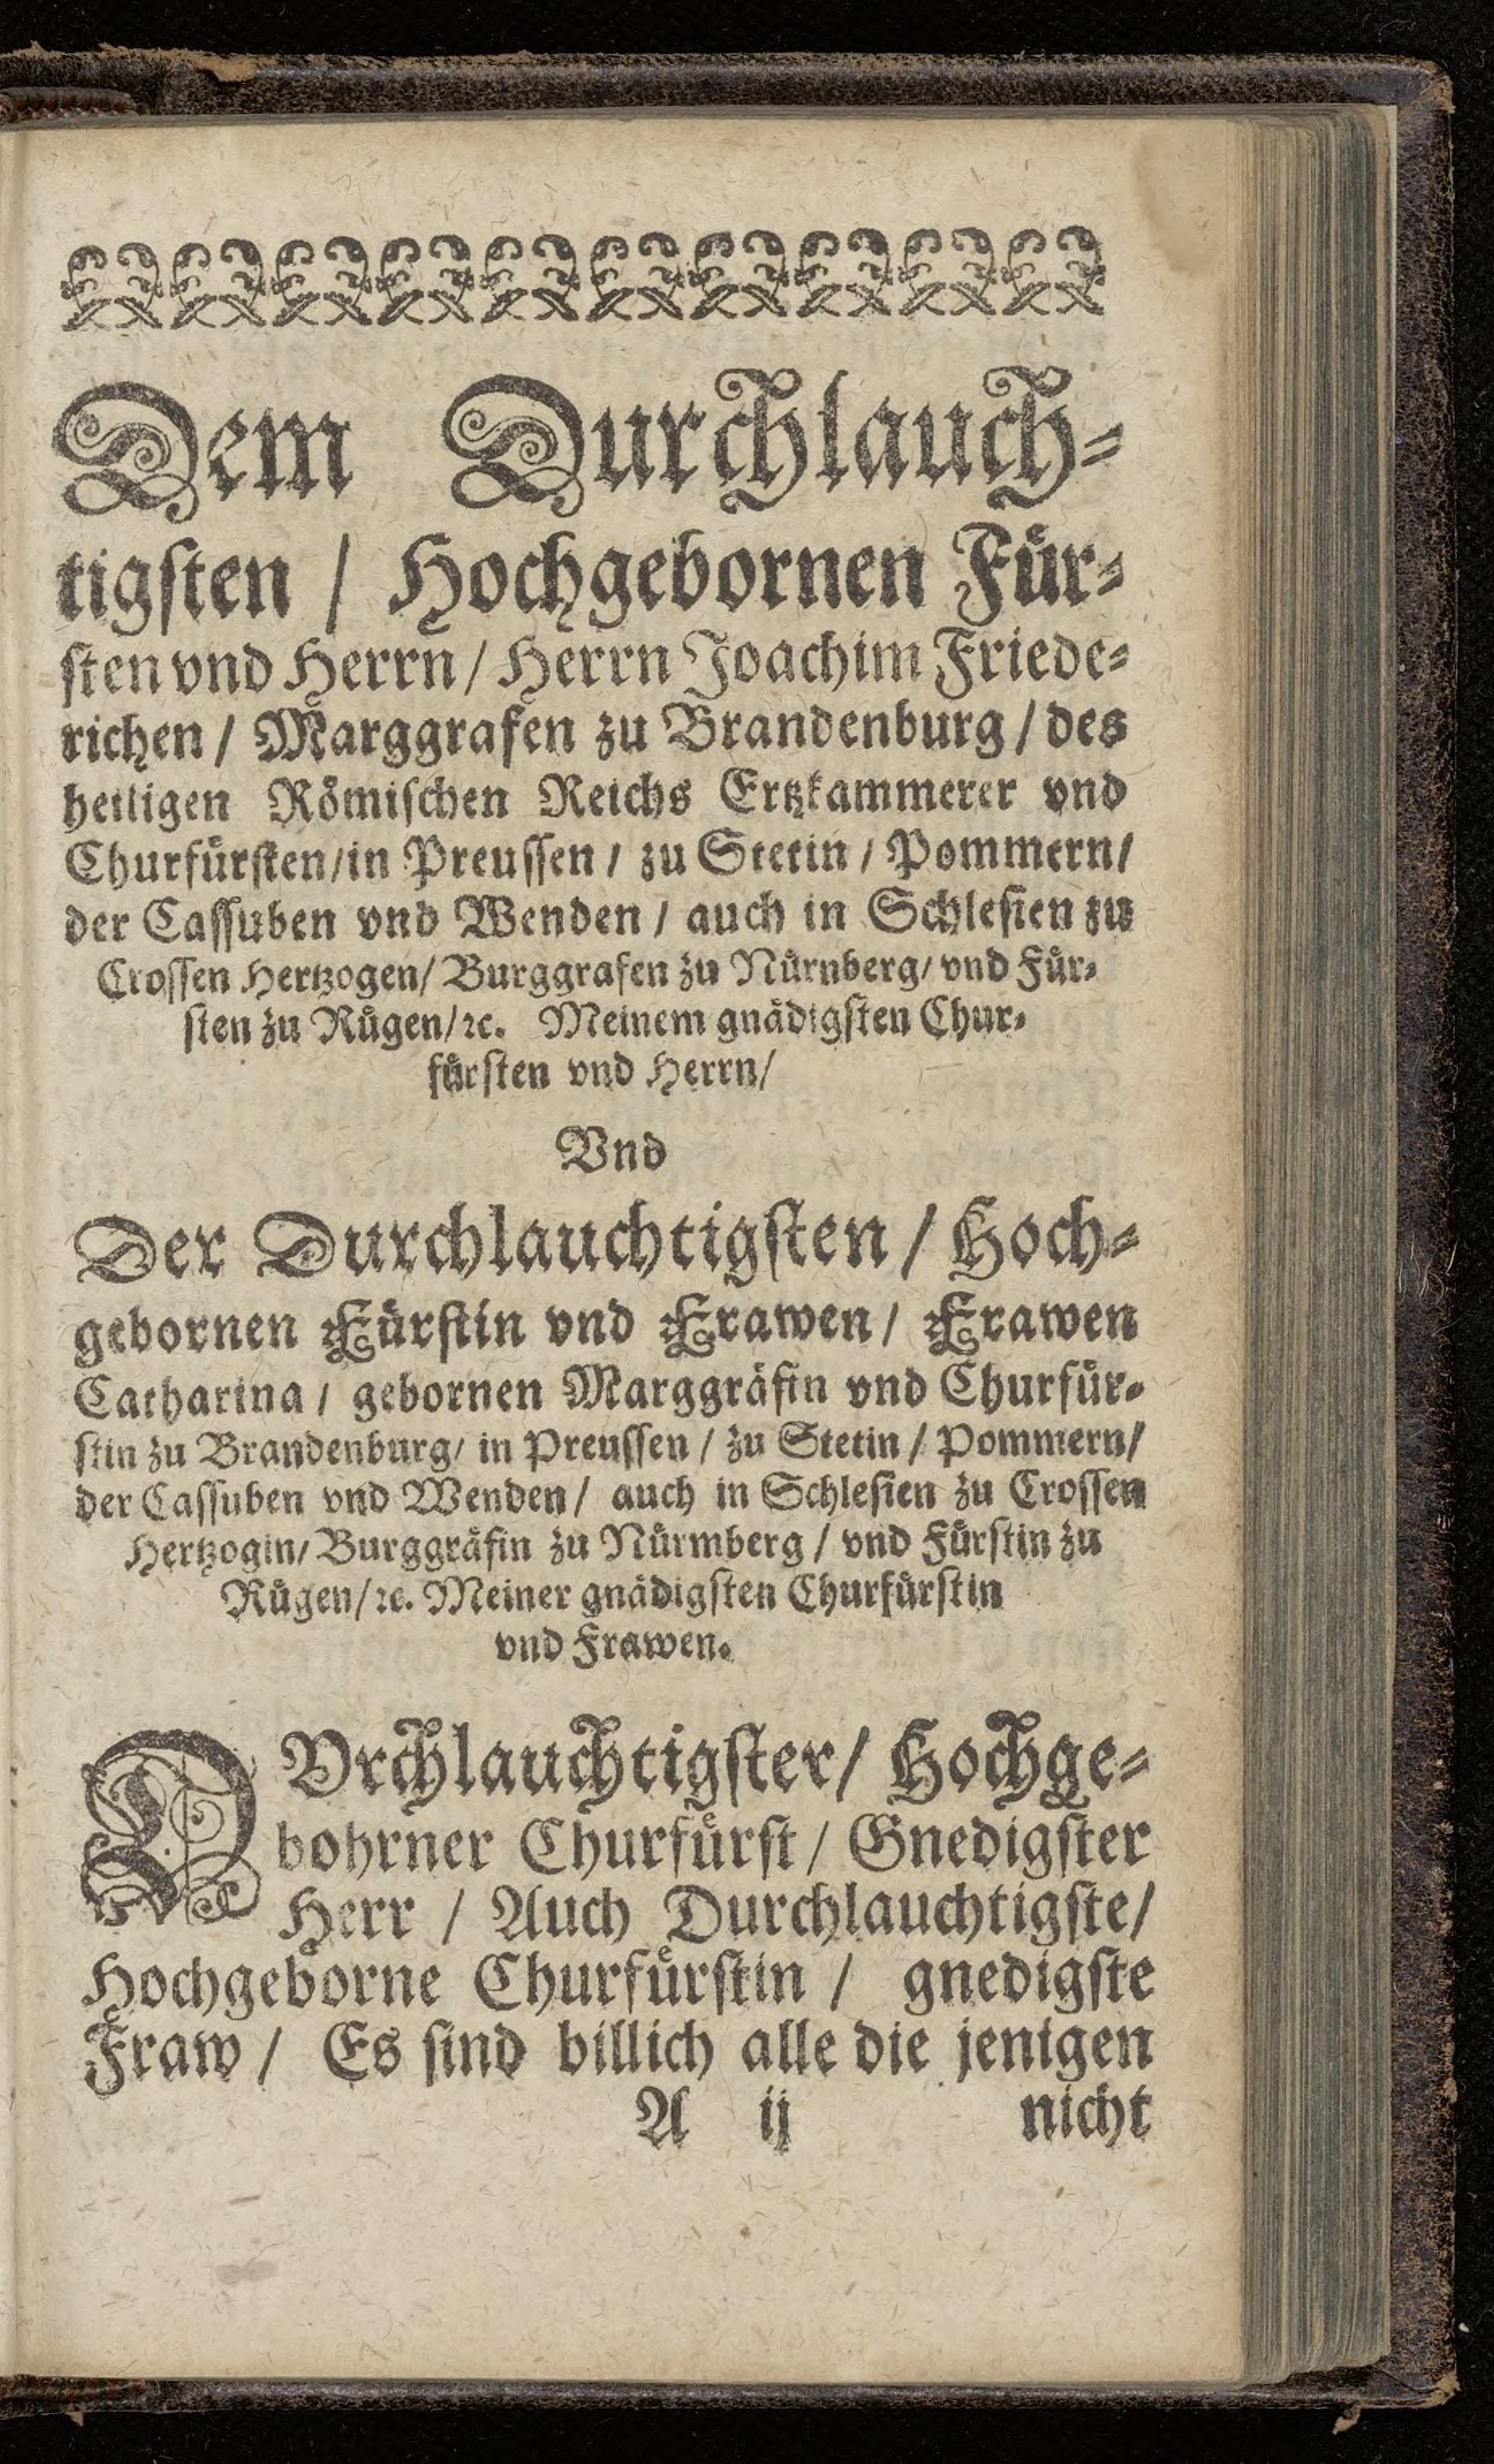 Dem Durchlauch-
tigſten / Hochgebornen Fuͤr-
ſten vnd Herrn / Herrn Joachim Friede-
richen / Marggrafen zu Brandenburg / des
heiligen Roͤmiſchen Reichs Ertzkammerer vnd
Churfuͤrſten/in Preuſſen / zu Stetin / Pommern/
der Caſſuben vnd Wenden / auch in Schleſien zu
Croſſen Hertzogen/ Burggrafen zu Nuͤrnberg/ vnd Fuͤr-
ſten zu Ruͤgen/ꝛc. Meinem gnaͤdigſten Chur-
fuͤrſten vnd Herrn/
Vnd
Der Durchlauchtigſten / Hoch-
gebornen Fuͤrſtin vnd Frawen / Frawen
Catharina / gebornen Marggraͤfin vnd Churfuͤr-
ſtin zu Brandenburg/ in Preuſſen / zu Stetin / Pommern/
der Caſſuben vnd Wenden / auch in Schleſien zu Croſſen
Hertzogin/ Burggraͤfin zu Nuͤrmberg / vnd Fuͤrſtin zu
Ruͤgen/ꝛc. Meiner gnaͤdigſten Churfuͤrſtin
vnd Frawen.
DVrchlauchtigſter/ Hochge-
bohrner Churfuͤrſt / Gnedigſter
Herr / Auch Durchlauchtigſte/
Hochgeborne Churfuͤrſtin / gnedigſte
Fraw / Es ſind billich alle die jenigen
A ij nicht